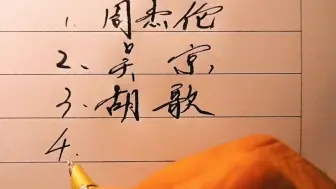 1. 周杰伦
2. 吴京
3. 胡歌
4.